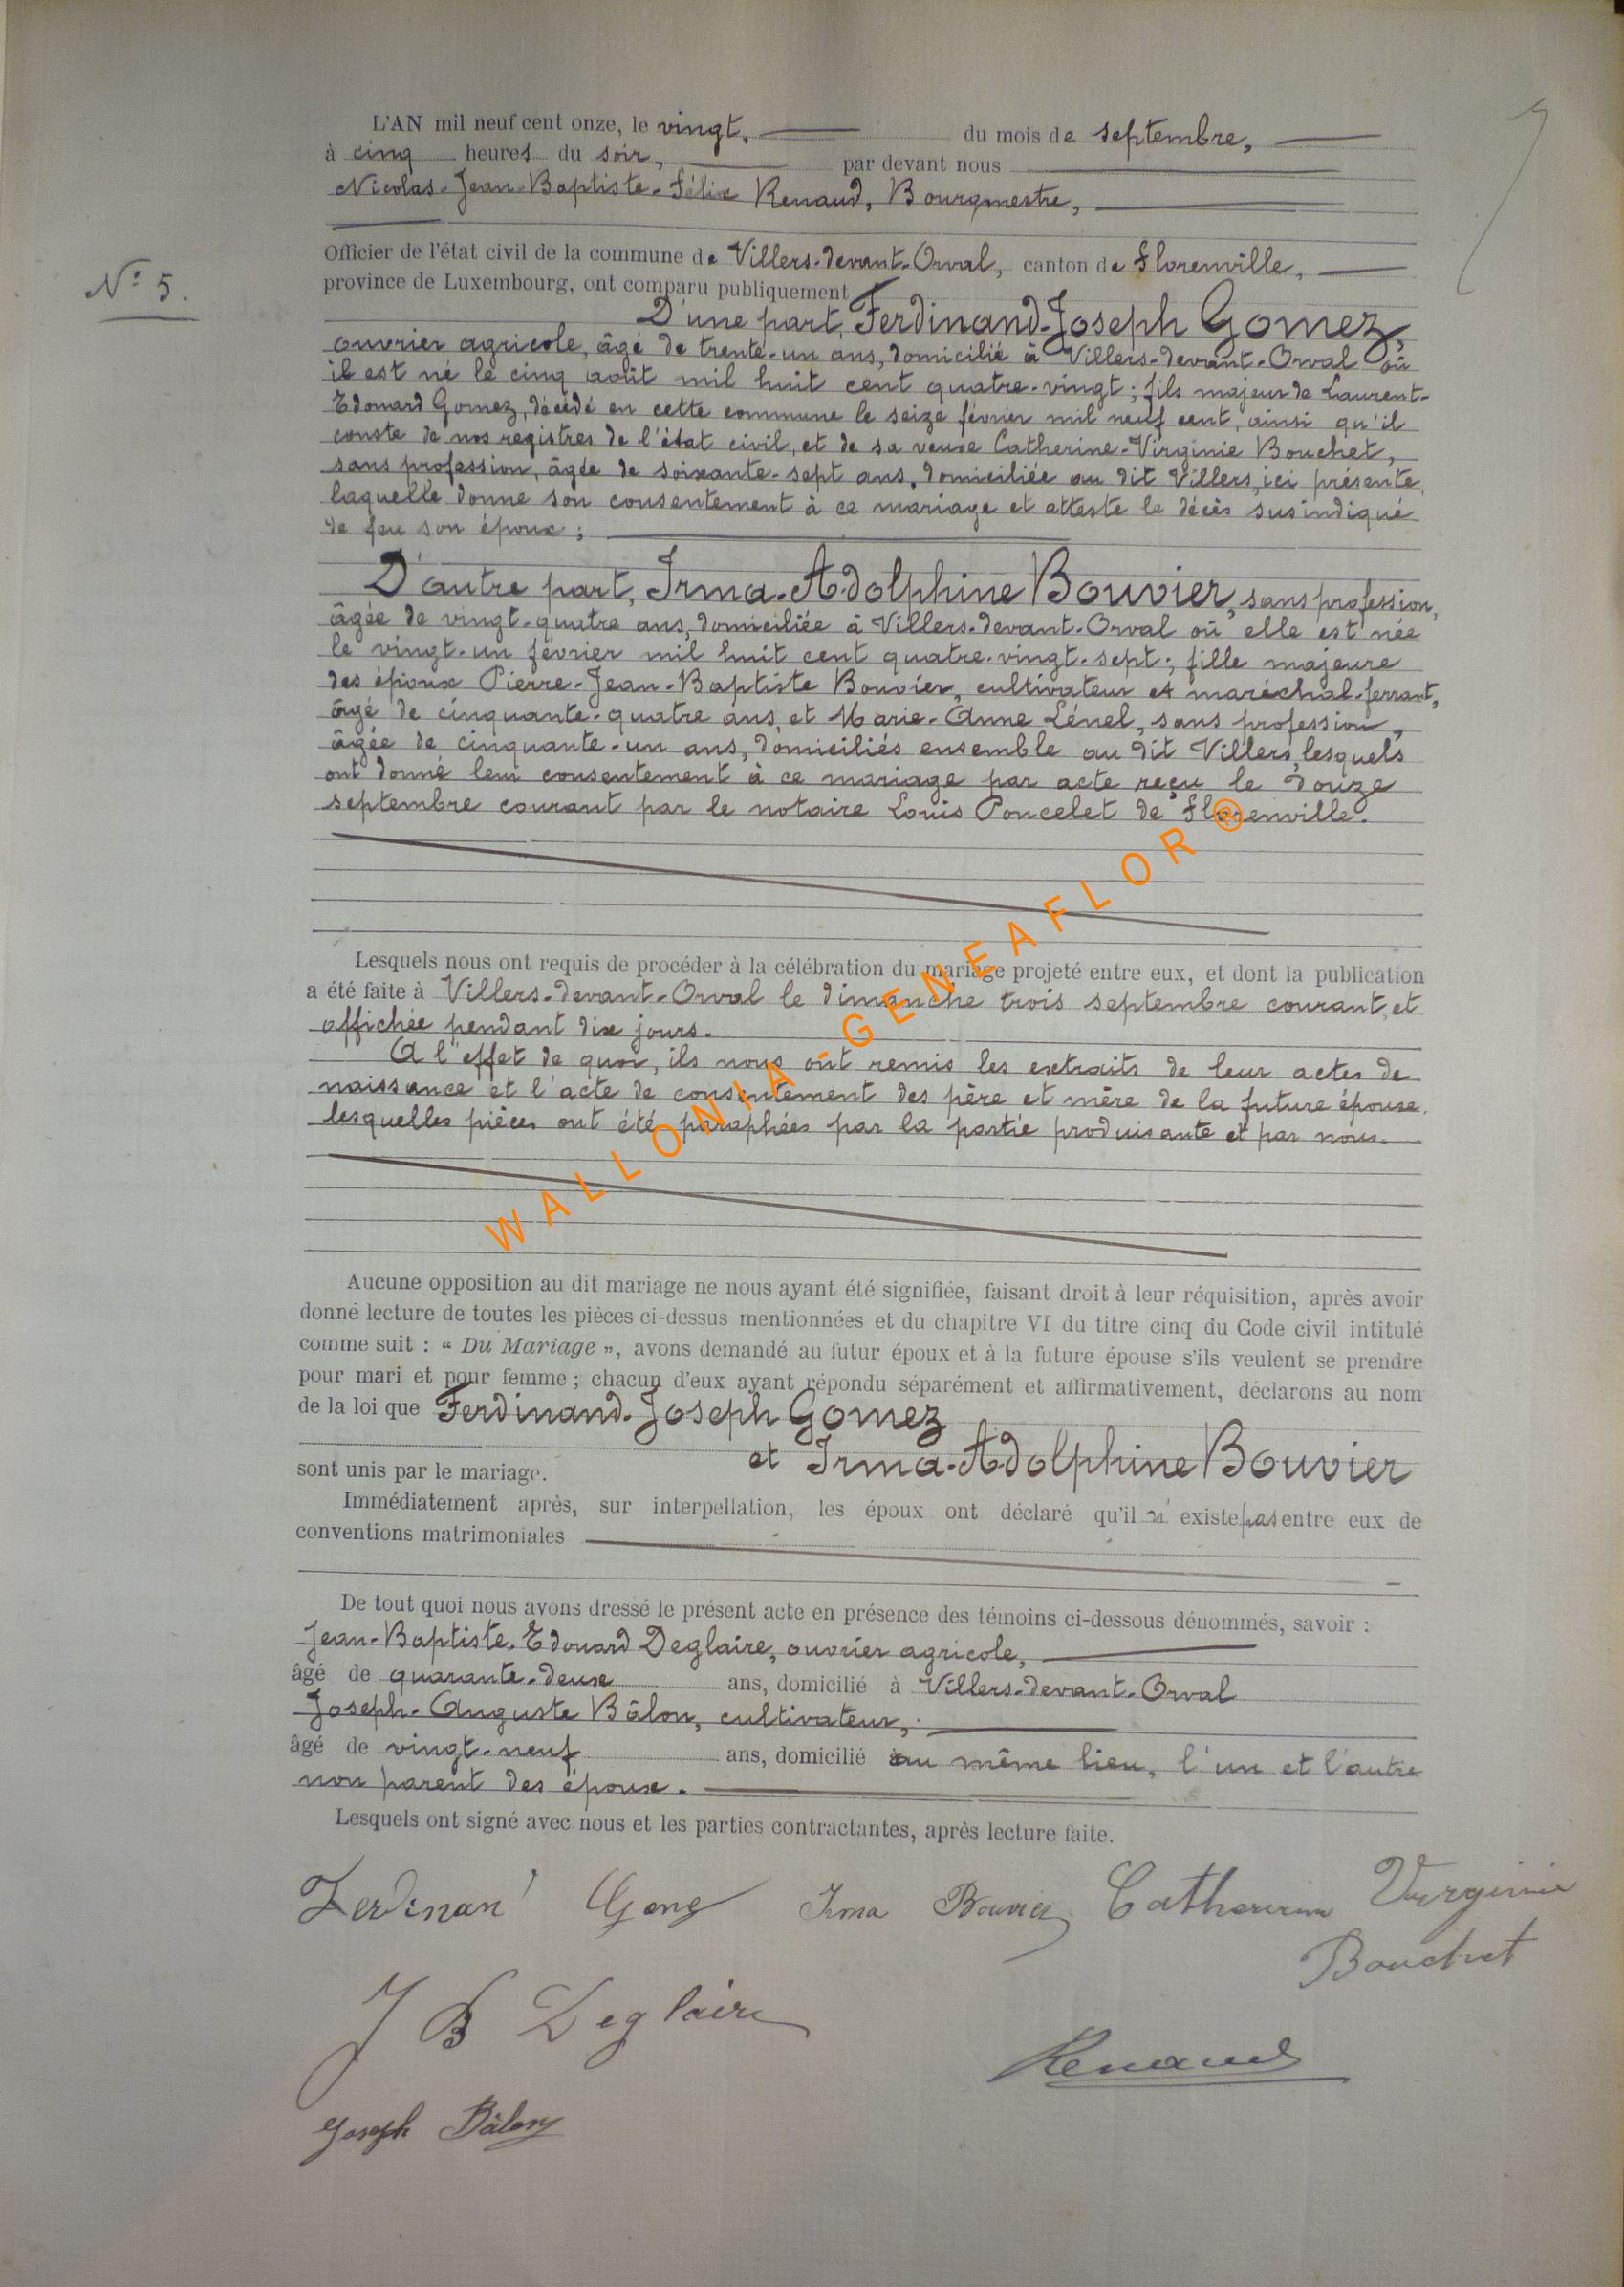 L'AN mil neuf cent onze, le vingt, du mois de septembre,
à cinq heures du soir, par devant nous
Nicolas-Jean-Baptiste-Félix Renaud, Bourgmestre,
Officier de l'état civil de la commune de Villers-devant-Orval, canton de Florenville,
N° 5.
province de Luxembourg, ont comparu publiquement
D'une part, Ferdinand-Joseph Gomez,
ouvrier agricole, âgé de trente-un ans, domicilié à Villers-devant-Orval où
il est né le cinq août mil huit cent quatre-vingt; fils majeur de Laurent-
Edouard Gomez, décédé en cette commune le seize février mil neuf cent, ainsi qu'il
conste de nos registres de l'état civil, et de sa veuve Catherine-Virginie Bouchet,
sans profession, âgée de soixante-sept ans, domiciliée au dit Villers, ici présente,
laquelle donne son consentement à ce mariage et atteste le décès susindiqué
de feu son époux;
D'autre part, Irma-Adolphine Bouvier, sans profession,
âgée de vingt-quatre ans, domiciliée à Villers-devant-Orval où elle est née
le vingt-un février mil huit cent quatre-vingt-sept; fille majeure
des époux Pierre-Jean-Baptiste Bouvier, cultivateur et maréchal-ferrant,
âgé de cinquante-quatre ans, et Marie-Anne Lénel, sans profession,
âgée de cinquante-un ans, domiciliés ensemble au dit Villers, lesquels
ont donné leur consentement à ce mariage par acte reçu le douze
septembre courant par le notaire Louis Poncelet de Florenville.
WALLONIA-GENEAFLOR®
Lesquels nous ont requis de procéder à la célébration du mariage projeté entre eux, et dont la publication
a été faite à Villers-devant-Orval le dimanche trois septembre courant, et
affichée pendant dix jours.
A l'effet de quoi, ils nous ont remis les extraits de leur actes de
naissance et l'acte de consentement des père et mère de la future épouse,
lesquelles pièces ont été paraphées par la partie produisante et par nous.
Aucune opposition au dit mariage ne nous ayant été signifiée, faisant droit à leur réquisition, après avoir
donné lecture de toutes les pièces ci-dessus mentionnées et du chapitre VI du titre cinq du Code civil intitulé
comme suit : « Du Mariage », avons demandé au futur époux et à la future épouse s'ils veulent se prendre
pour mari et pour femme ; chacun d'eux ayant répondu séparément et affirmativement, déclarons au nom
de la loi que Ferdinand-Joseph Gomez
et Irma-Adolphine Bouvier
sont unis par le mariage.
Immédiatement après, sur interpellation, les époux ont déclaré qu'il n'existe pas entre eux de
conventions matrimoniales
De tout quoi nous avons dressé le présent acte en présence des témoins ci-dessous dénommés, savoir :
Jean-Baptiste-Edouard Deglaire, ouvrier agricole,
âgé de quarante-deux ans, domicilié à Villers-devant-Orval
Joseph-Auguste Bâlon, cultivateur,
âgé de vingt-neuf ans, domicilié au même lieu, l'un et l'autre
non parent des époux.
Lesquels ont signé avec nous et les parties contractantes, après lecture faite.
Ferdinand Irma Bouvier Catherine Virginie
Bouchet
J B Deglaire
Renaud
Joseph Bâlon